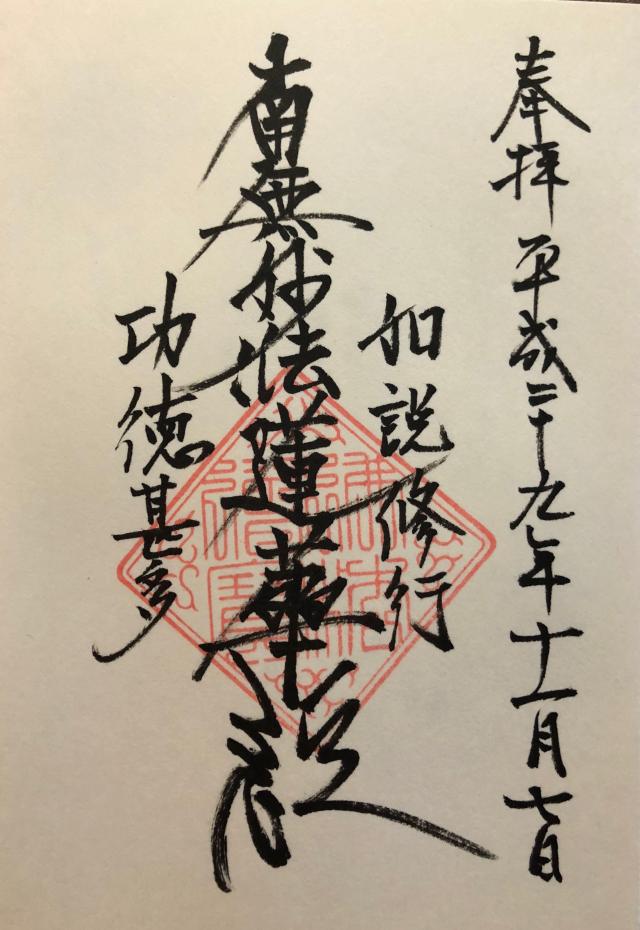 奉拝 平成二十九年十一月七日
如説修行
南無妙法蓮華経
功徳甚多